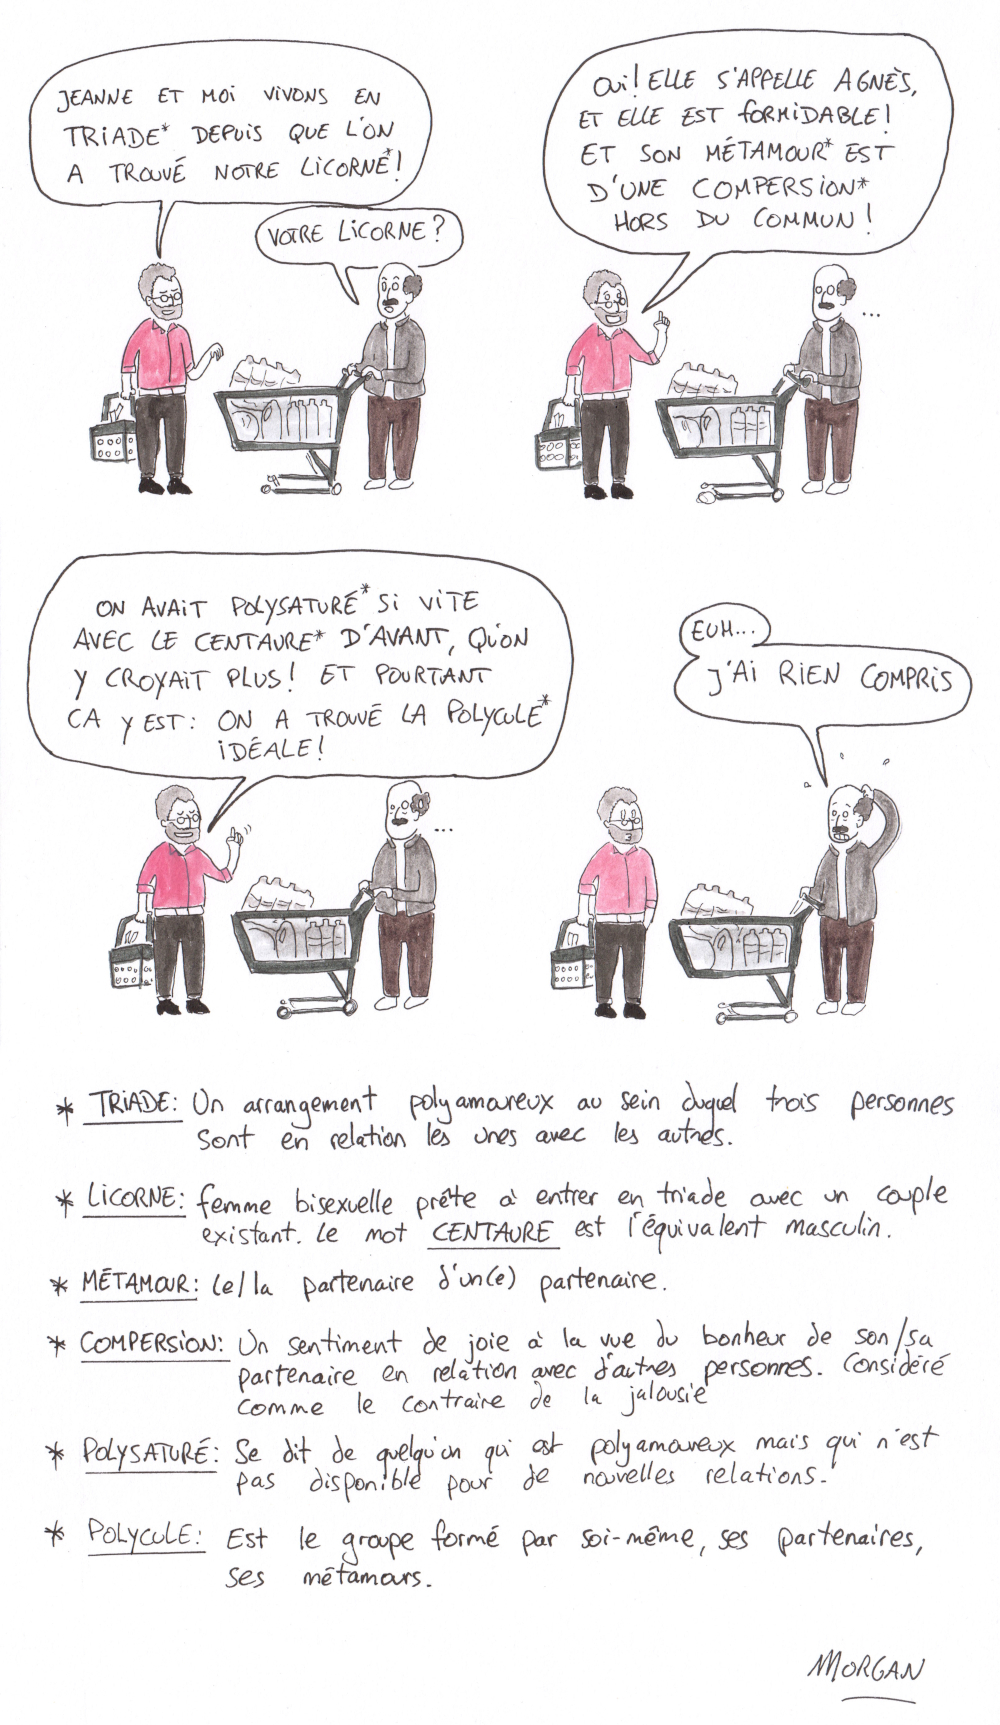 JEANNE ET MOI VIVONS EN
TRIADE* DEPUIS QUE L'ON
A TROUVÉ NOTRE LICORNE*!
VOTRE LICORNE?
OUI! ELLE S'APPELLE AGNÈS,
ET ELLE EST FORMIDABLE!
ET SON MÉTAMOUR* EST
D'UNE COMPERSION*
HORS DU COMMUN!
...
ON AVAIT POLYSATURÉ* SI VITE
AVEC LE CENTAURE* D'AVANT, QU'ON
Y CROYAIT PLUS! ET POURTANT
CA Y EST: ON A TROUVÉ LA POLYCULE*
IDÉALE!
...
EUH...
J'AI RIEN COMPRIS
* TRIADE: Un arrangement polyamoureux au sein duquel trois personnes
sont en relation les unes avec les autres.
* LICORNE: femme bisexuelle prête à entrer en triade avec un couple
existant. Le mot CENTAURE est l'équivalent masculin.
* MÉTAMOUR: le/la partenaire d'un(e) partenaire.
* COMPERSION: Un sentiment de joie à la vue du bonheur de son/sa
partenaire en relation avec d'autres personnes. Considéré
comme le contraire de la jalousie
* POLYSATURÉ: Se dit de quelqu'un qui est polyamoureux mais qui n'est
pas disponible pour de nouvelles relations.
* POLYCULE: Est le groupe formé par soi-même, ses partenaires,
ses métamours.
MORGAN